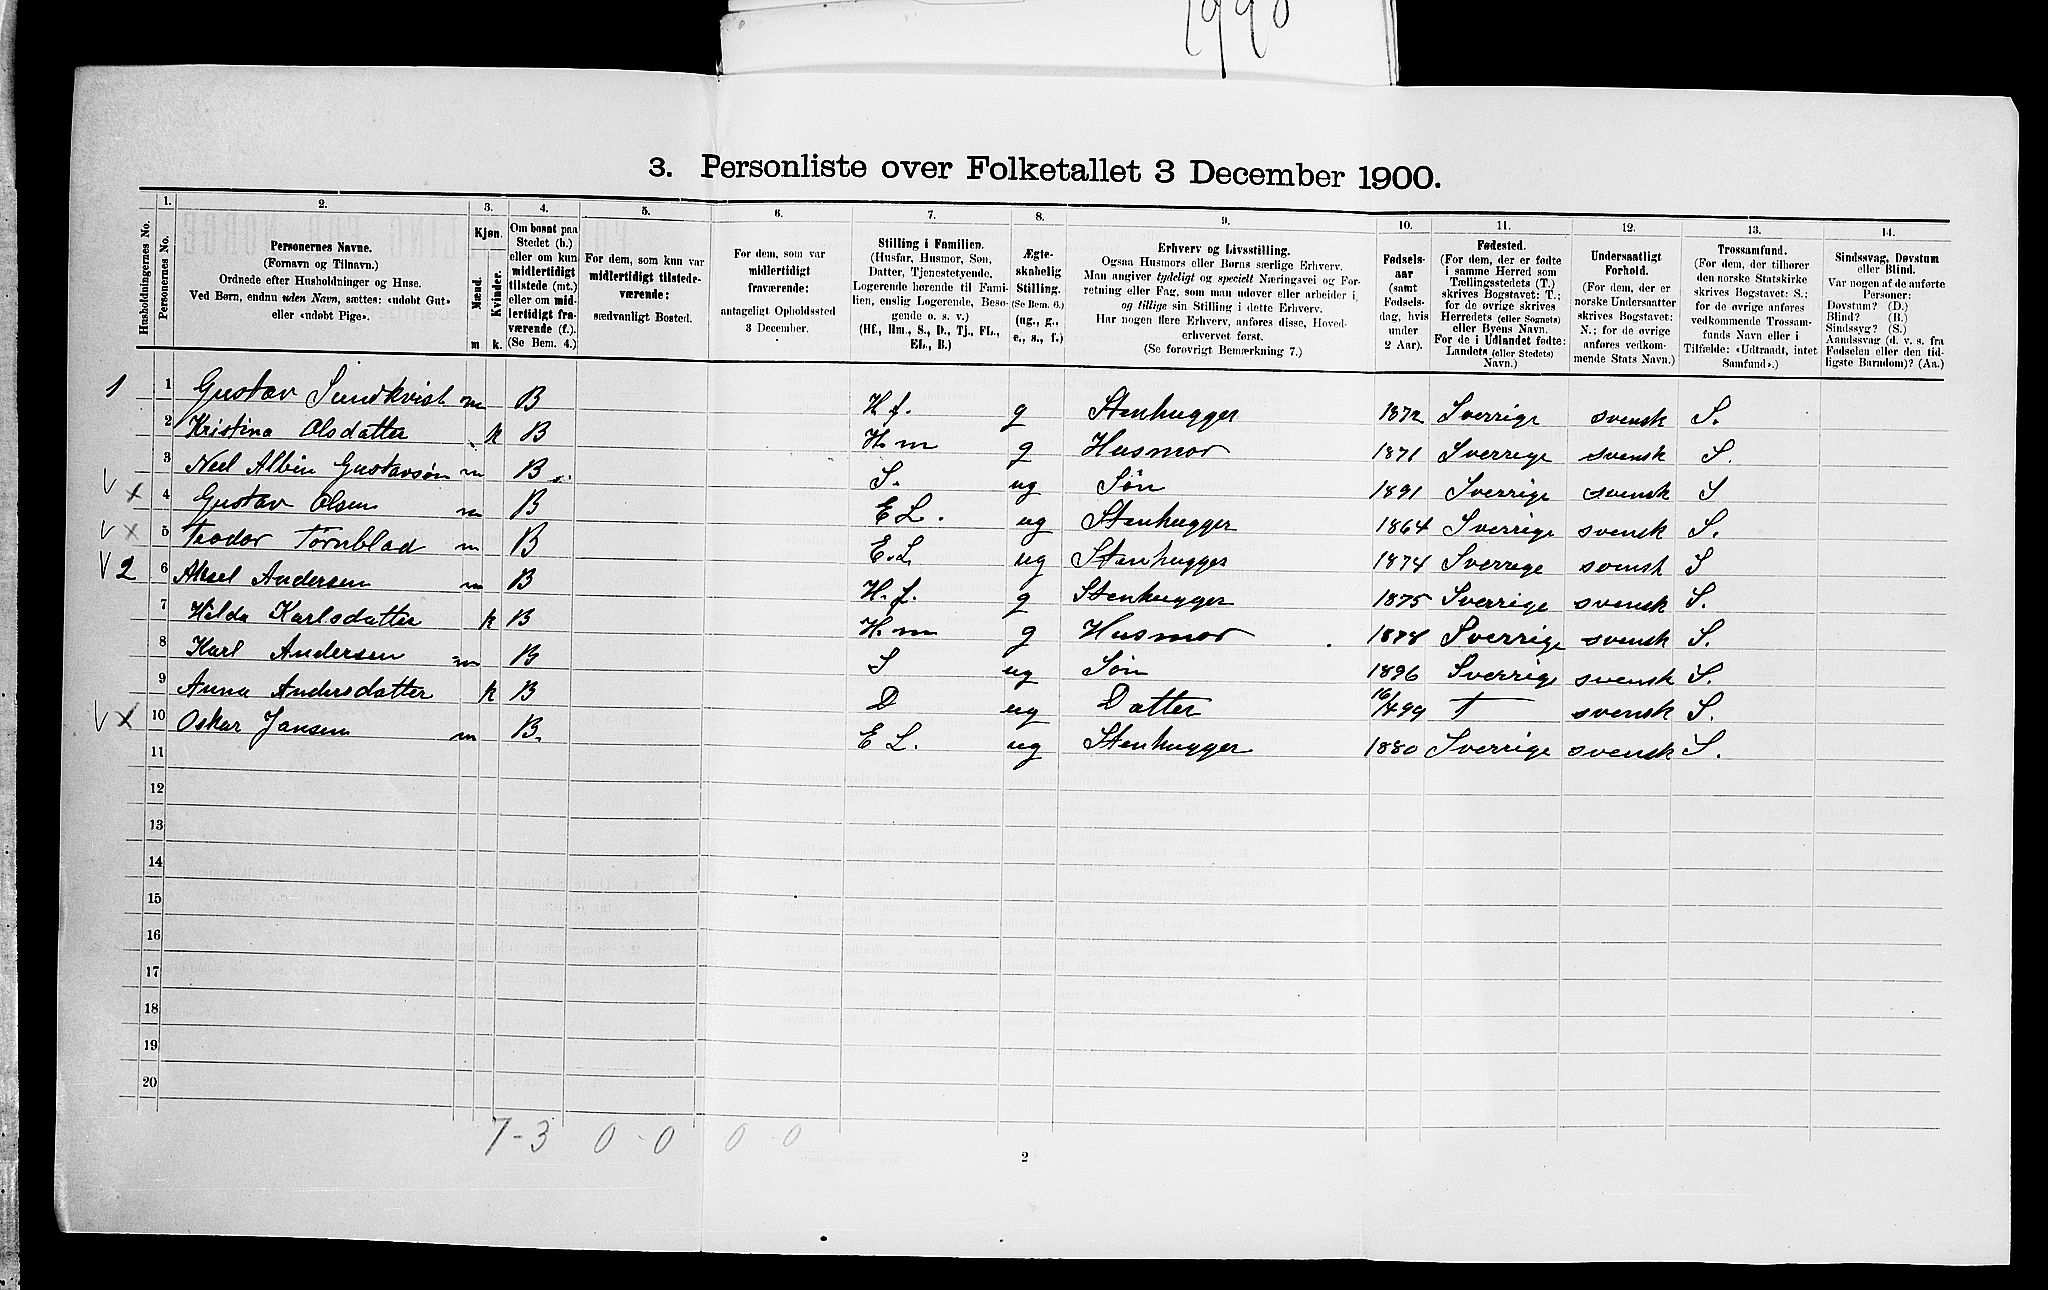 1990
3. Personliste over Folketallet 3 December 1900.
Husholdningernes No.
1. Personernes No.
2. Personernes Navne.
(Fornavn og Tilnavn.)
Ordnede efter Husholdninger og Huse.
Ved Børn, endnu uden Navn, sættes: «udøbt Gut»
eller «udøbt Pige».
3. Kjøn.
Mænd. Kvinder.
m k.
4. Om bosat paa
Stedet (b.)
eller om kun
midlertidigt
tilstede (mt.)
eller om mid-
lertidigt fra-
værende (f.).
(Se Bem. 4.)
5. For dem, som kun var
midlertidigt tilstede-
værende:
sædvanligt Bosted.
6. For dem, som var
midlertidigt
fraværende:
antageligt Opholdssted
3 December.
7. Stilling i Familien.
(Husfar, Husmor, Søn,
Datter, Tjenestetyende,
Logerende hørende til Fami-
lien, enslig Logerende, Besø-
gende o. s. v.)
(Hf., Hm., S., D., Tj., FL.,
EL., B.)
8. Ægte-
skabelig
Stilling.
(Se Bem. 6.)
(ug., g.,
e., s., f.)
9. Erhverv og Livsstilling.
Ogsaa Husmors eller Børns særlige Erhverv.
Man angiver tydeligt og specielt Næringsvei og For-
retning eller Fag, som man udøver eller arbeider i,
og tillige sin Stilling i dette Erhverv.
Har nogen flere Erhverv, anføres disse, Hoved-
erhvervet først.
(Se forøvrigt Bemærkning 7.)
10. Fødsels-
aar
(samt
Fødsels-
dag, hvis
under
2 Aar).
11. Fødested.
(For dem, der er fødte
i samme Herred som
Tællingsstedets (T.)
skrives Bogstavet: T.;
for de øvrige skrives
Herredets (eller Sognets)
eller Byens Navn.
For de i Udlandet fødte:
Landets (eller Stedets)
Navn.)
12. Undersaatligt
Forhold.
(For dem, der er
norske Undersaatter
skrives Bogstavet:
N.; for de øvrige
anføres vedkom-
mende Stats Navn.)
13. Trossamfund.
(For dem, der tilhører
den norske Statskirke
skrives Bogstavet: S.;
for de øvrige anføres
vedkommende Trossam-
funds Navn eller i
Tilfælde: «Udtraadt, intet
Samfund».)
14. Sindssvag, Døvstum
eller Blind.
Var nogen af de anførte
Personer:
Døvstum? (D.)
Blind? (B.)
Sindssyg? (S.)
Aandssvag (d. v. s. fra
Fødselen eller den tid-
ligste Barndom)? (Aa.)
1 1 Gustav Sundkvist m B H f. g Stenhugger 1872 Sverrige svensk S.
2 Kristina Olsdatter k B H. m g Husmor 1871 Sverrige svensk S.
3 Neel Albin Gustavsøn m B S. ug Søn 1891 Sverrige svensk S
V x 4 Gustav Olsen m B E L. ug Stenhugger 1864 Sverrige svensk S.
V x 5 Teodor Tørnblad m B E. L ug Stenhugger 1874 Sverrige svensk S
V 2 6 Aksel Andersen m B H. f. g Stenhugger 1875 Sverrige svensk S.
7 Hilda Karlsdatter k B H. m g Husmor 1878 Sverrige svensk S.
8 Karl Andersen m B S ug Søn 1896 Sverrige svensk S.
9 Anna Andersdatter k B D ug Datter 16/4 99 T svensk S.
V x 10 Oskar Jansen m B. E L. ug Stenhugger 1880 Sverrige svensk S.
11
12
13
14
15
16
17
18
19
20
7-3 0-0 0-0
2